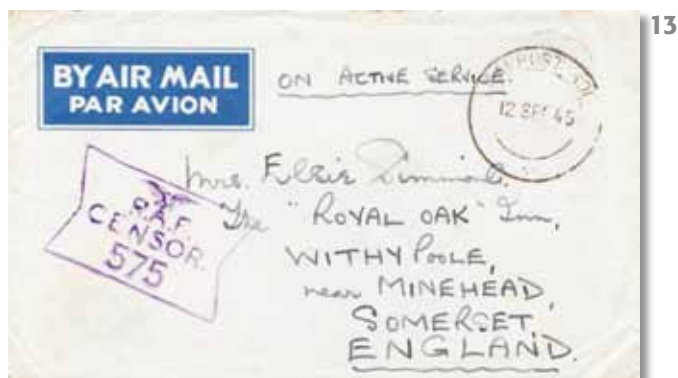 13
BY AIR MAIL
PAR AVION
ON ACTIVE SERVICE.
12 SEP 45
R.A.F.
CENSOR.
575
Mrs. Elsie
The "ROYAL OAK" Inn,
WITHYPOOLE,
near MINEHEAD,
SOMERSET,
ENGLAND.